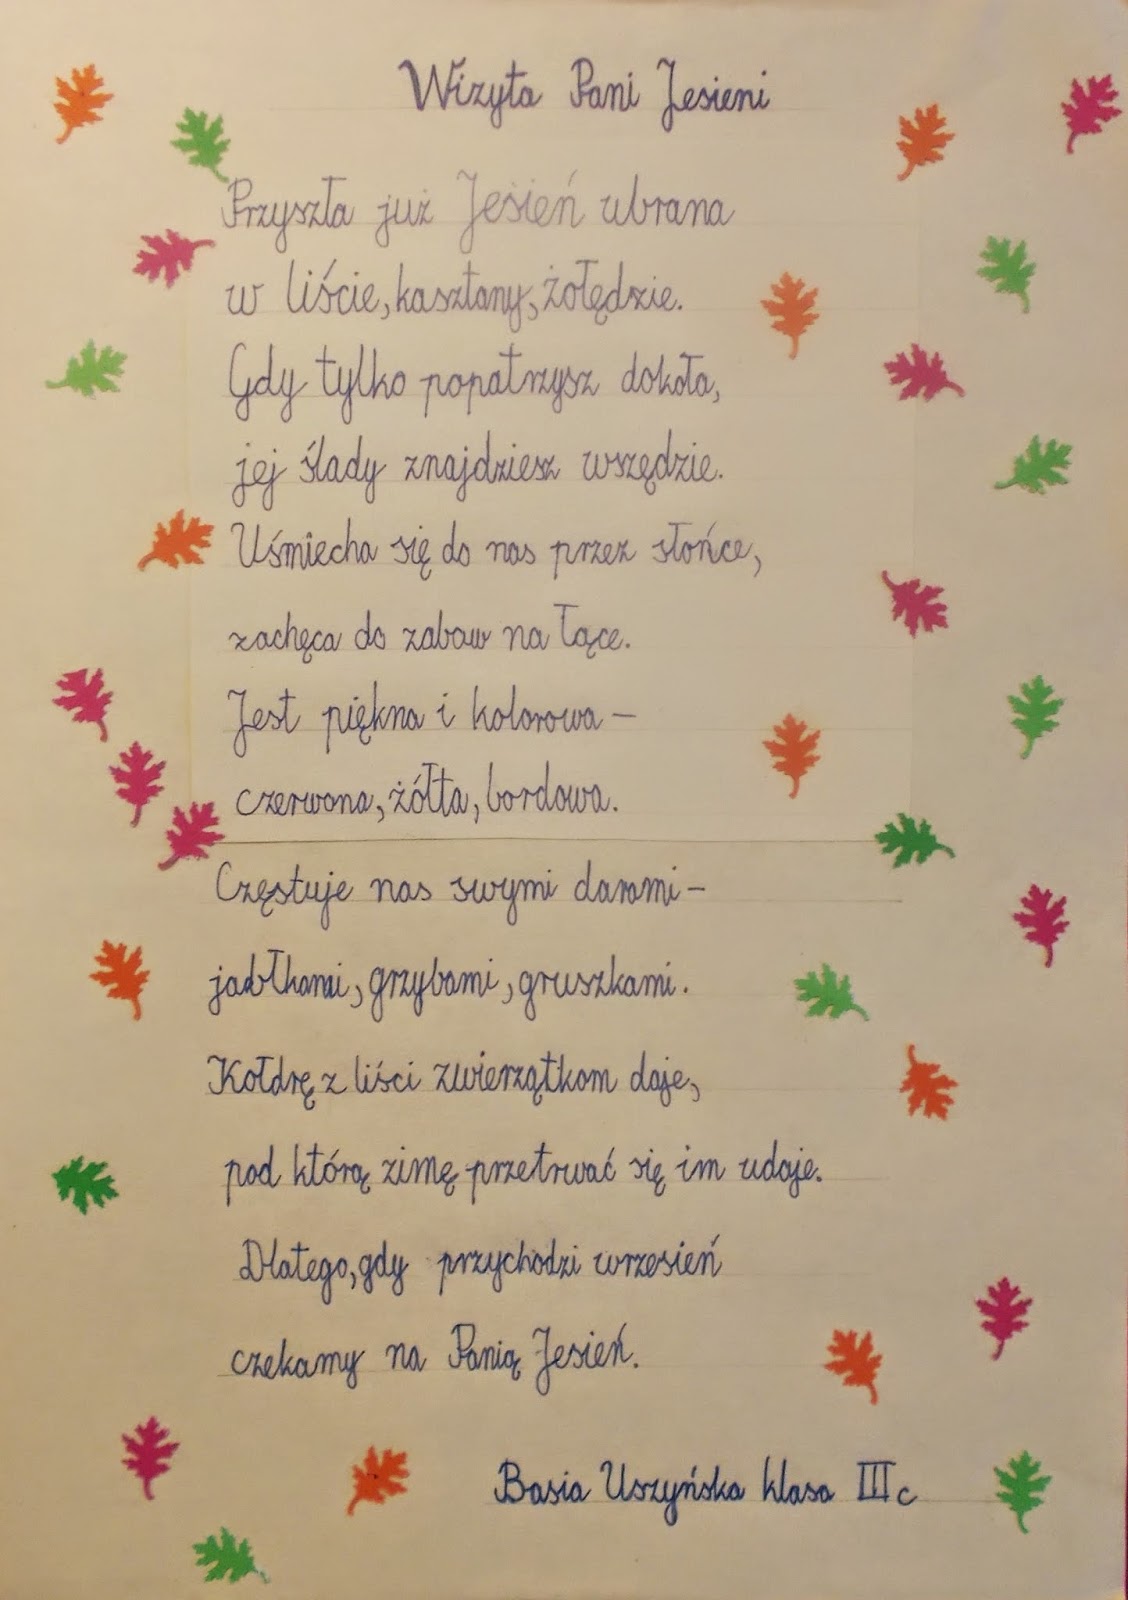 Wizyta Pani Jesieni
Przyszła już Jesień ubrana
w liście, kasztany, żołędzie.
Gdy tylko popatrzysz dokoła,
jej ślady znajdziesz wszędzie.
Uśmiecha się do nas przez słońce,
zachęca do zabaw na łące.
Jest piękna i kolorowa –
czerwona, żółta, bordowa.
Częstuje nas swymi darami –
jabłkami, grzybami, gruszkami.
Kołdrę z liści zwierzątkom daje,
pod którą zimę przetrwać się im udaje.
Dlatego, gdy przychodzi wrzesień
czekamy na Panią Jesień.
Basia Uszyńska klasa III c